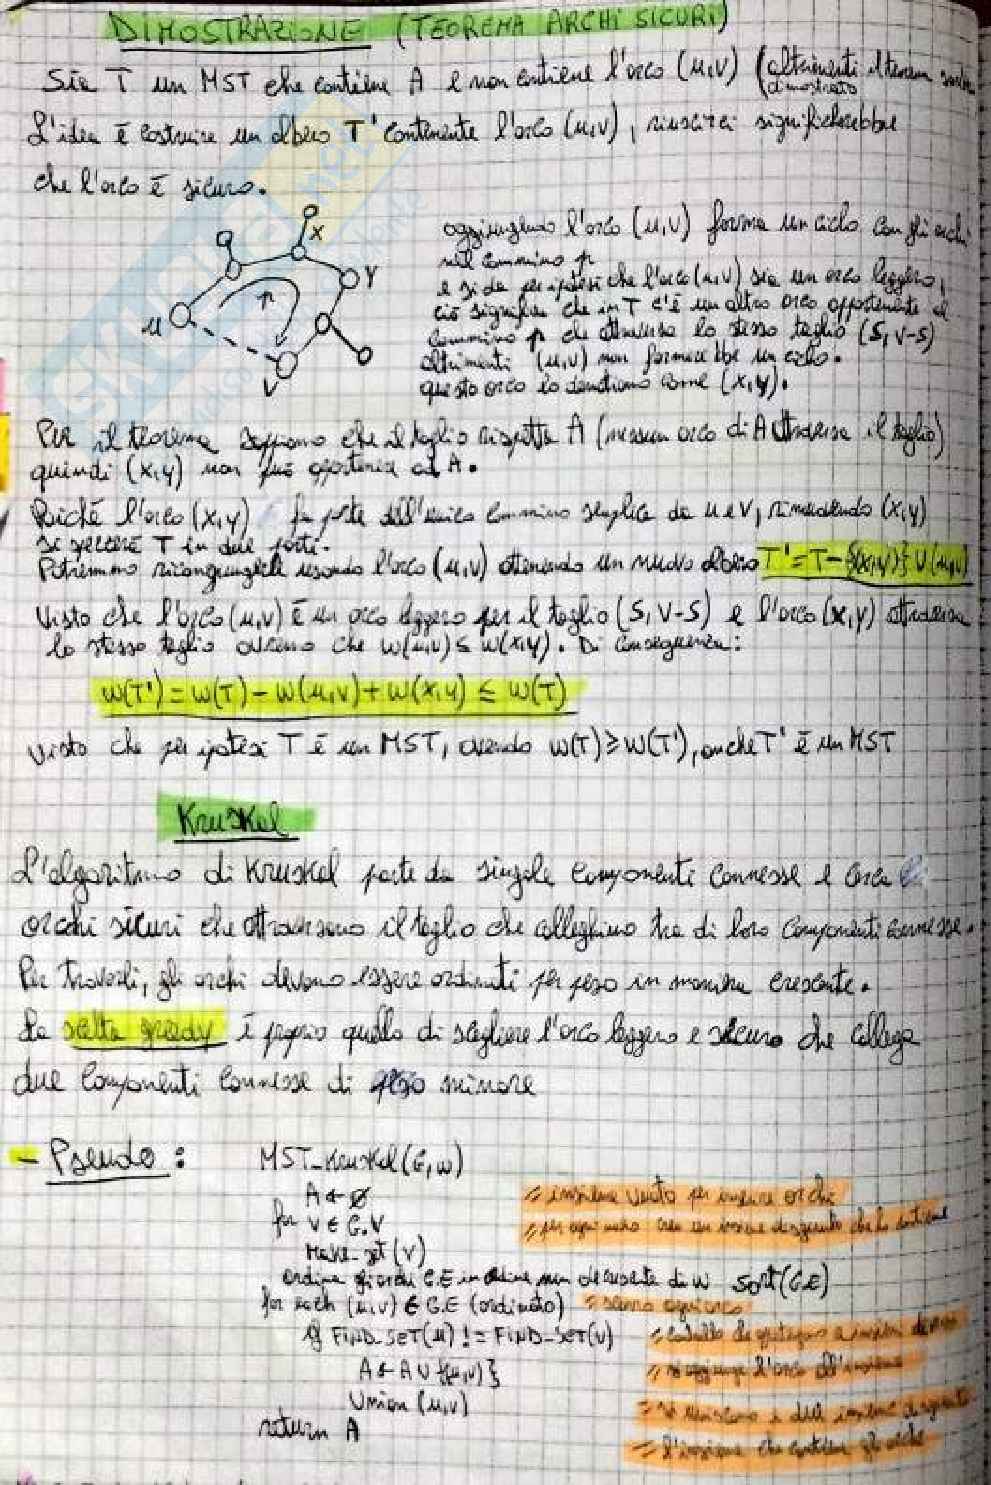 DIMOSTRAZIONE (TEOREMA ARCHI SICURI)
Sia T un MST che contiene A e non contiene l'arco (u,v) (altrimenti il teorema sarebbe
dimostrato
L'idea è costruire un albero T' contenente l'arco (u,v), riuscirci significherebbe
che l'arco è sicuro.
x
y
u
p
v
aggiungendo l'arco (u,v) forma un ciclo con gli archi
nel cammino p
e si da per ipotesi che l'arco (u,v) sia un arco leggero,
ciò significa che in T c'è un altro arco appartenente al
cammino p che attraversa lo stesso taglio (S, V-S)
altrimenti (u,v) non formerebbe un ciclo.
questo arco lo denotiamo come (x,y).
Per il teorema sappiamo che il taglio rispetta A (nessun arco di A attraversa il taglio)
quindi (x,y) non può appartenere ad A.
Poiché l'arco (x,y) fa parte dell'unico cammino semplice da u e v, rimuovendo (x,y)
si spezzerà T in due parti.
Potremmo ricongiungerle usando l'arco (u,v) ottenendo un nuovo albero T' = T - {(x,y)} U (u,v)
Visto che l'arco (u,v) è un arco leggero per il taglio (S, V-S) e l'arco (x,y) attraversa
lo stesso taglio avremo che w(u,v) ≤ w(x,y). Di conseguenza:
w(T') = w(T) - w(u,v) + w(x,y) ≤ w(T)
Visto che per ipotesi T è un MST, avendo w(T) ≥ w(T'), anche T' è un MST
Kruskal
L'algoritmo di Kruskal parte da singole componenti connesse e cerca
archi sicuri che attraversano il taglio che colleghiamo tra di loro componenti connesse.
Per trovarli, gli archi devono essere ordinati per peso in maniera crescente.
La scelta greedy è proprio quella di scegliere l'arco leggero e sicuro che collega
due componenti connesse di peso minore
- Pseudo:
MST-Kruskal(G,w)
A ← ∅ // insieme vuoto per inserire archi
for v ∈ G.V // per ogni nodo crea un insieme disgiunto che lo contiene
Make-set(v)
ordina gli archi G.E in ordine non decrescente di w sort(G.E)
for each (u,v) ∈ G.E (ordinato)
if FIND_SET(u) != FIND_SET(v)
A ← A ∪ {(u,v)} // si aggiunge l'arco all'insieme
Union (u,v) // si uniscono i due insiemi disgiunti
return A // l'insieme che contiene gli archi